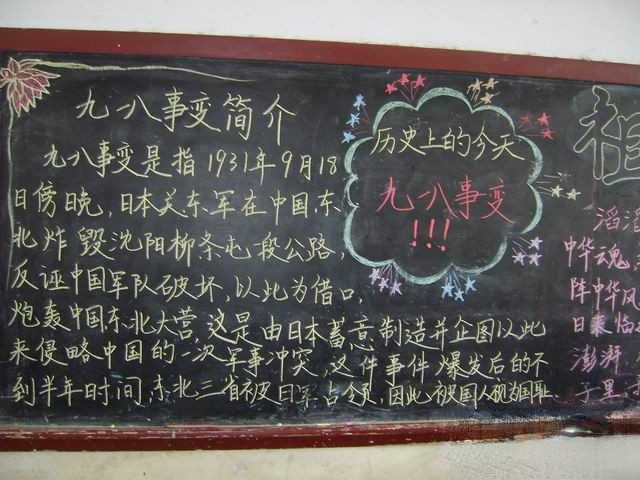 九一八事变简介
九一八事变是指1931年9月18
日傍晚,日本关东军在中国东
北炸毁沈阳柳条屯一段公路,
反诬中国军队破坏,以此为借口,
炮轰中国东北大营,这是由日本蓄意制造并企图以此
来侵略中国的一次军事冲突,这件事件爆发后的不
到半年时间,东北三省被日军占领,因此被国人视为国耻.
历史上的今天
九一八事变
!!!
祖
滔
中华魂
阵中华风
日来临
澎湃
子里